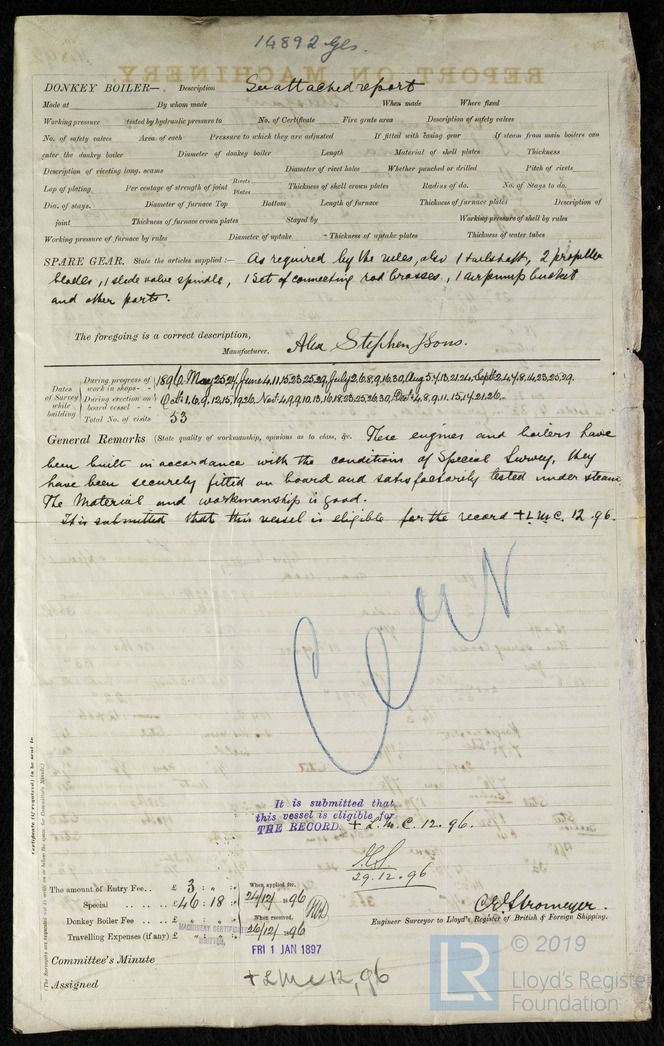 14892 Gls.
REPORT ON MACHINERY.
DONKEY BOILER— Description See attached report
Made at By whom made When made Where fixed
Working pressure tested by hydraulic pressure to No. of Certificate Fire grate area Description of safety valves
No. of safety valves Area of each Pressure to which they are adjusted If fitted with easing gear If steam from main boilers can
enter the donkey boiler Diameter of donkey boiler Length Material of shell plates Thickness
Description of riveting long. seams Diameter of rivet holes Whether punched or drilled Pitch of rivets
Lap of plating Per centage of strength of joint Rivets Plates Thickness of shell crown plates Radius of do. No. of Stays to do.
Dia. of stays. Diameter of furnace Top Bottom Length of furnace Thickness of furnace plates Description of
joint Thickness of furnace crown plates Stayed by Working pressure of shell by rules
Working pressure of furnace by rules Diameter of uptake Thickness of uptake plates Thickness of water tubes
SPARE GEAR. State the articles supplied:— As required by the rules, also 1 tailshaft, 2 propeller
blades, 1 slide valve spindle, 1 set of connecting rod brasses, 1 air pump bucket
and other parts.
The foregoing is a correct description,
Manufacturer. Alex Stephen & Sons.
Dates of Survey while building
During progress of work in shops - - 1896. May 25, 27, June 4, 11, 15, 23, 25, 29, July 2, 6, 8, 9, 16, 30, Aug 5, 7, 13, 21, 24, Sept 2, 4, 7, 8, 14, 23, 25, 29.
During erection on board vessel - - Oct 1, 6, 9, 12, 15, 19, 26, Nov 4, 9, 9, 10, 13, 16, 18, 23, 25, 26, 30, Dec 4, 8, 9, 11, 15, 17, 21, 26.
Total No. of visits 53
General Remarks (State quality of workmanship, opinions as to class, &c. These engines and boilers have
been built in accordance with the conditions of Special Survey, they
have been securely fitted on board and satisfactorily tested under steam
The Material and workmanship is good.
It is submitted that this vessel is eligible for the record + L.M.C. 12.96.
It is submitted that
this vessel is eligible for
THE RECORD + L.M.C. 12.96.
29.12.96
The amount of Entry Fee . . £ 3 : " : "
Special . . . . . £ 46 : 18 : "
Donkey Boiler Fee . . . £ " : " : "
Travelling Expenses (if any) £ " : " : "
When applied for,
24/12/96
When received,
26/12/96
MACHINERY CERTIFICATE
WRITTEN
FRI 1 JAN 1897
C. E. Stromeyer.
Engineer Surveyor to Lloyd's Register of British & Foreign Shipping.
Committee's Minute
Assigned + LMC 12,96
Certificate (if required) to be sent to
(The Surveyors are requested not to write on or below the space for Committee's Minute.)
LR
© 2019
Lloyd's Register
Foundation